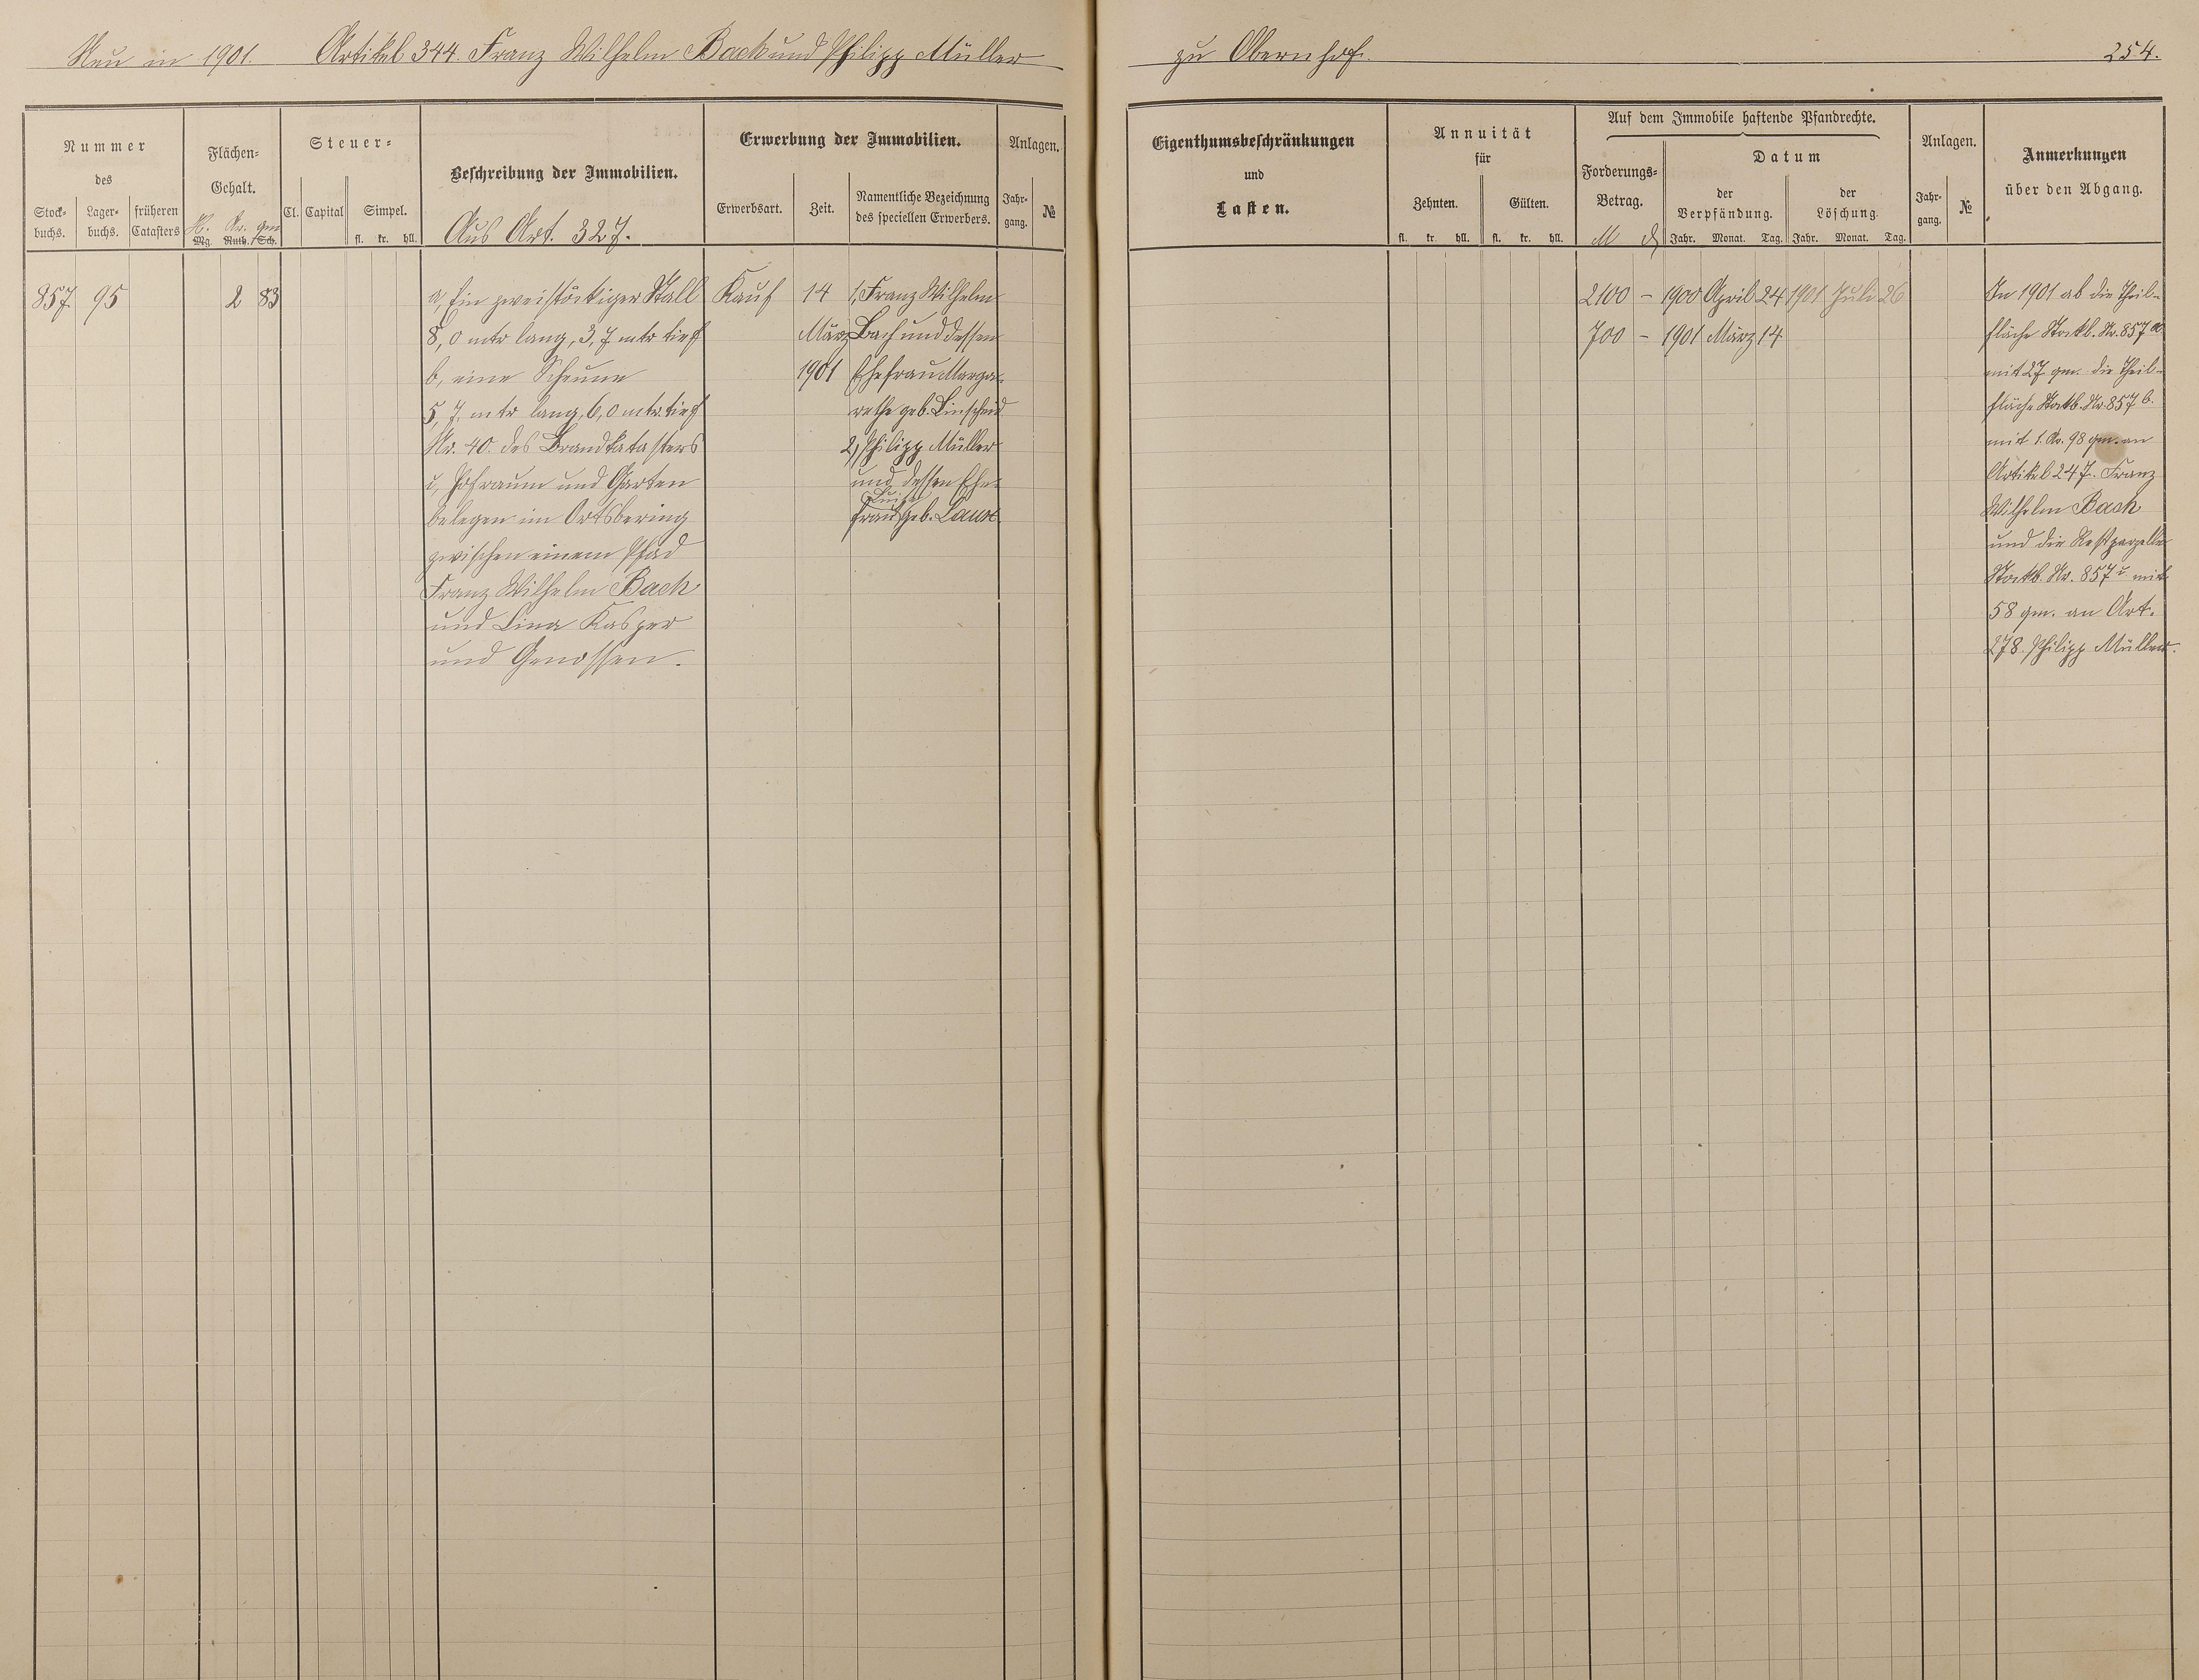 Neu in 1901. Artikel 344. Franz Wilhelm Bach und Philipp Müller
zu Obernhof. 254.
Nummer
des
Stock-
buchs.
Lager-
buchs.
früheren
Catasters
Flächen-
Gehalt.
H. Ar. qm
Mg. Ruth. Sch.
Steuer-
Cl. Capital Simpel.
fl. kr. hll.
Beschreibung der Immobilien.
Aus Art. 327.
Erwerbung der Immobilien.
Erwerbsart. Zeit.
Namentliche Bezeichnung
des speciellen Erwerbers.
Anlagen.
Jahr-
gang.
№
857 95 2 83
a, Ein zweistöckiger Stall
8,0 mtr lang, 3,7 mtr tief
b, eine Scheune
5,7 mtr lang, 6,0 mtr. tief
Nr. 40. des Brandkatasters
c, Hofraum und Garten
belegen im Ortsbering
zwischen einem Pfad
Franz Wilhelm Bach
und Lina Kasper
und Genossen.
Kauf
14
März
1901
1, Franz Wilhelm
Bach und dessen
Ehefrau Marga-
rethe geb. Linscheid
2, Philipp Müller
und dessen Ehe-
Luise
frau geb. Laux
Eigenthumsbeschränkungen
und
Lasten.
Annuität
für
Zehnten. Gülten.
fl. kr. hll. fl. kr. hll.
Auf dem Immobile haftende Pfandrechte.
Forderungs-
Betrag.
M ₰
Datum
der
Verpfändung.
Jahr. Monat. Tag.
der
Löschung.
Jahr. Monat. Tag.
Anlagen.
Jahr-
gang.
№
Anmerkungen
über den Abgang.
2100 – 1900 April 24 1901 Juli 26
700 – 1901 März 14
In 1901 ab die Theil-
fläche Stockb. Nr. 857 a
mit 27 qm. die Theil-
fläche Stockb. Nr. 857 b.
mit 1. Ar. 98 qm. an
Artikel 247. Franz
Wilhelm Bach
und die Restparzelle
Stockb. Nr. 857 c mit
58 qm. an Art.
278. Philipp Müller.